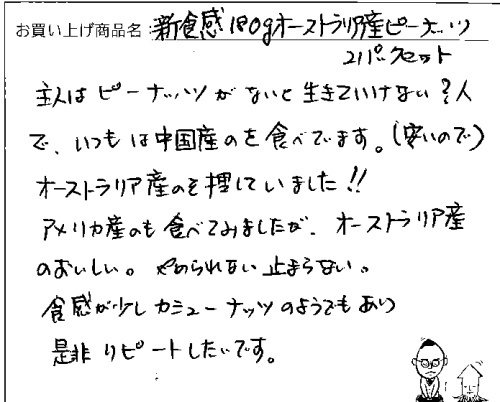 お買い上げ商品名：新食感180gオーストラリア産ピーナッツ
2パックセット
主人はピーナッツがないと生きていけない?人
で、いつもは中国産のを食べてます。(安いので)
オーストラリア産のを探していました!!
アメリカ産のも食べてみましたが、オーストラリア産
のおいしい。やめられない止まらない。
食感が少しカシューナッツのようでもあり
是非リピートしたいです。